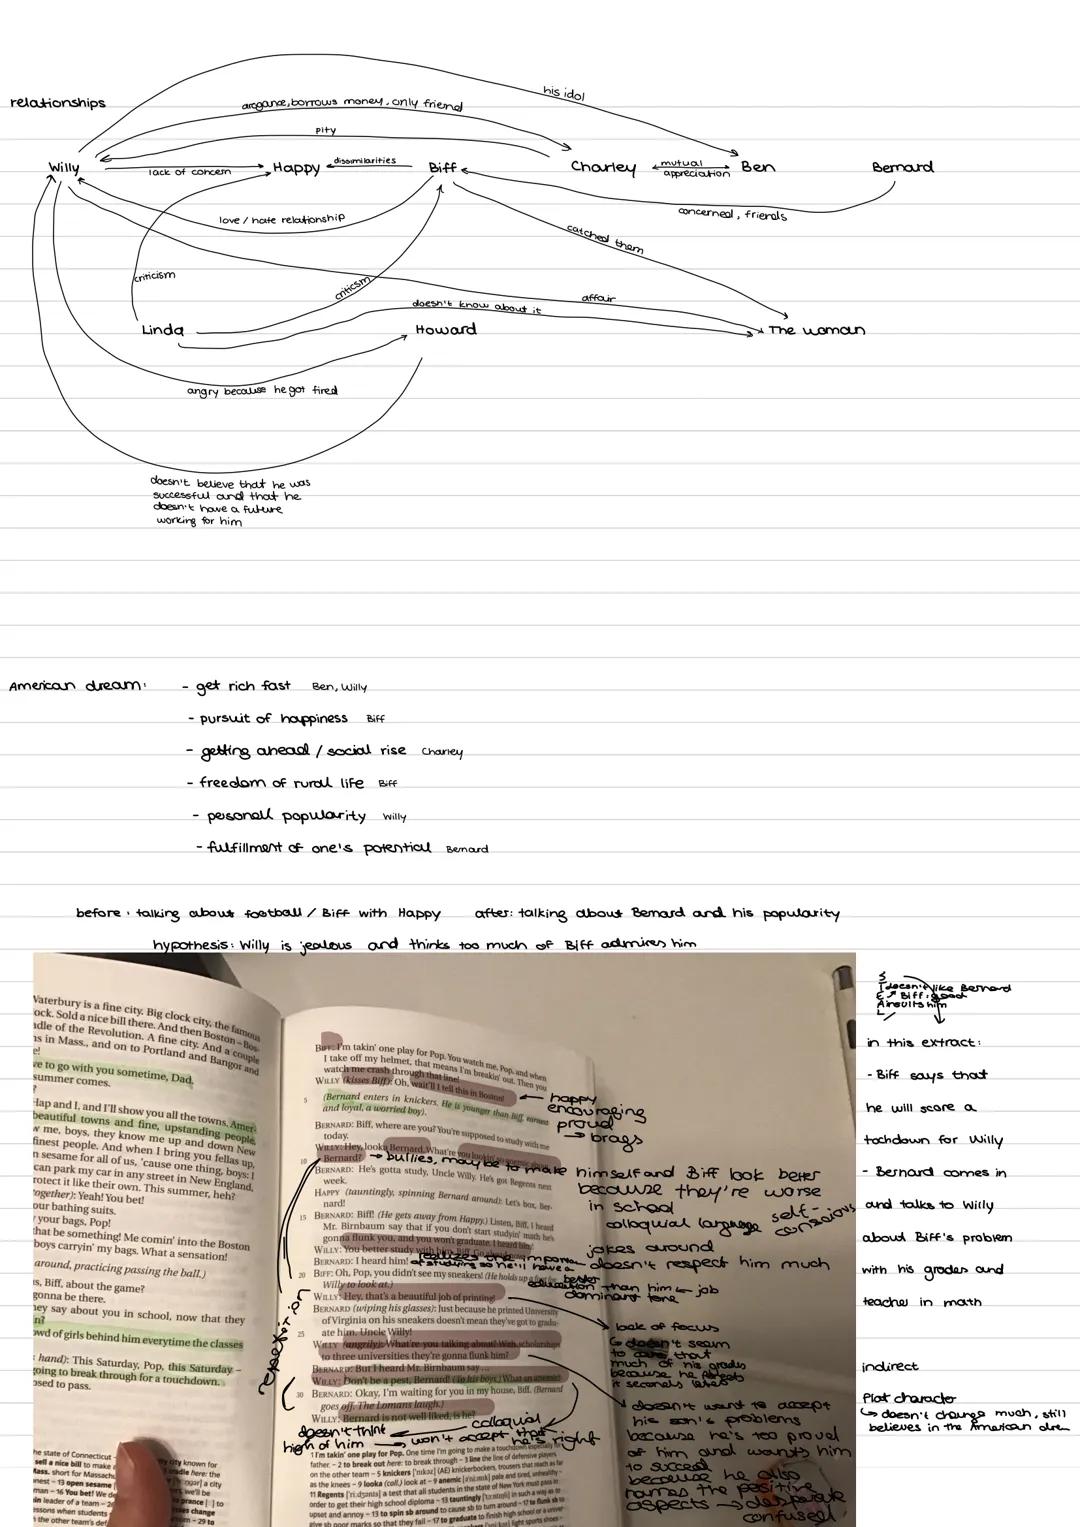 relationships
his idol
arogance, borrows money, only friend
pity
Willy
lack of concern
Happy
dissimilarities
Biff
Charley
mutual
appreciation
Ben
Bernard
concerned, friends
love / hate relationship
catched them
criticism
criticsm
affair
doesn't know about it
Linda
Howard
The woman
angry because he got fired
doesn't believe that he was
successful and that he
doesn't have a future
working for him
American dream:
- get rich fast Ben, Willy
- pursuit of happiness Biff
- getting ahead / social rise Charley
- freedom of rural life Biff
- personell popularity Willy
- fulfillment of one's potential Bernard
before: talking about football / Biff with Happy after: talking about Bernard and his popularity
hypothesis: Willy is jealous and thinks too much of Biff admires him
Waterbury is a fine city. Big clock city, the famous
ock. Sold a nice bill there. And then Boston – Bos-
adle of the Revolution. A fine city. And a couple
ns in Mass., and on to Portland and Bangor and
e!
ve to go with you sometime, Dad.
summer comes.
?
Hap and I, and I'll show you all the towns. Amer-
beautiful towns and fine, upstanding people.
w me, boys, they know me up and down New
finest people. And when I bring you fellas up,
n sesame for all of us, 'cause one thing, boys: I
can park my car in any street in New England,
rotect it like their own. This summer, heh?
ogether): Yeah! You bet!
our bathing suits.
your bags, Pop!
hat be something! Me comin' into the Boston
boys carryin' my bags. What a sensation!
around, practicing passing the ball.)
us, Biff, about the game?
gonna be there.
hey say about you in school, now that they
n?
owd of girls behind him everytime the classes
hand): This Saturday, Pop, this Saturday –
going to break through for a touchdown.
osed to pass.
BIFF: I'm takin' one play for Pop. You watch me, Pop, and when
I take off my helmet, that means I'm breakin' out. Then you
watch me crash through that line!
WILLY (kisses Biff): Oh, wait'll I tell this in Boston!
5 (Bernard enters in knickers. He is younger than Biff, earnest
and loyal, a worried boy).
BERNARD: Biff, where are you? You're supposed to study with me
today.
WILLY: Hey, looka Bernard. What're you lookin' so anemic about,
10 Bernard?
BERNARD: He's gotta study, Uncle Willy. He's got Regents next
week.
HAPPY (tauntingly, spinning Bernard around): Let's box, Ber-
nard!
15 BERNARD: Biff! (He gets away from Happy.) Listen, Biff, I heard
Mr. Birnbaum say that if you don't start studyin' math he's
gonna flunk you, and you won't graduate. I heard him!
WILLY: You better study with him, Biff. Go
BERNARD: I heard him!
20 BIFF: Oh, Pop, you didn't see my sneakers! (He holds up a foot for
Willy to look at.)
WILLY: Hey, that's a beautiful job of printing!
BERNARD (wiping his glasses): Just because he printed University
of Virginia on his sneakers doesn't mean they've got to gradu-
25 ate him, Uncle Willy!
WILLY (angrily): What're you talking about? With scholarships
to three universities they're gonna flunk him?
BERNARD: But I heard Mr. Birnbaum say ...
WILLY: Don't be a pest, Bernard! (To his boys.) What an anemic!
30 BERNARD: Okay, I'm waiting for you in my house, Biff. (Bernard
goes off. The Lomans laugh.)
WILLY: Bernard is not well liked, is he?
happy
encouraging
proud
→ brags
→ bullies, maybe to make himself and Biff look better
because they're worse
in school
colloquial language
self-conscious
jokes around
doesn't respect him much
realizes the importance
of studying so he'll have a
better
education than him ← job
dominant tone
repetition
lack of focus
doesn't seem
to care that
much of his grades
because he
doesn't want to accept
his son's problems
because he's too proud
of him and wants him
to succeed
because he also
names the positive
aspects → desperate
confused
doesn't think
high of him
colloquial
→ won't accept that
he's right
1 I'm takin' one play for Pop. One time I'm going to make a touchdown especially for
father. – 2 to break out here: to break through – 3 line the line of defensive players
on the other team – 5 knickers (AE) knickerbockers, trousers that reach as far
as the knees – 9 looka (coll.) look at – 9 anemic pale and tired, unhealthy –
11 Regents a test that all students in the state of New York must pass in
order to get their high school diploma – 13 tauntingly in such a way as to
upset and annoy – 13 to spin sb around to cause sb to turn around – 17 to flunk sb to
give sb poor marks so that they fail – 17 to graduate to finish high school or a univer-
S
T doesn't like Bernard
E Biff: good
A insults him
L
in this extract:
- Biff says that
he will score a
tochdown for Willy
- Bernard comes in
and talks to Willy
about Biff's problem
with his grades and
teacher in math
indirect
flat character
↳ doesn't change much, still
believes in the American dream